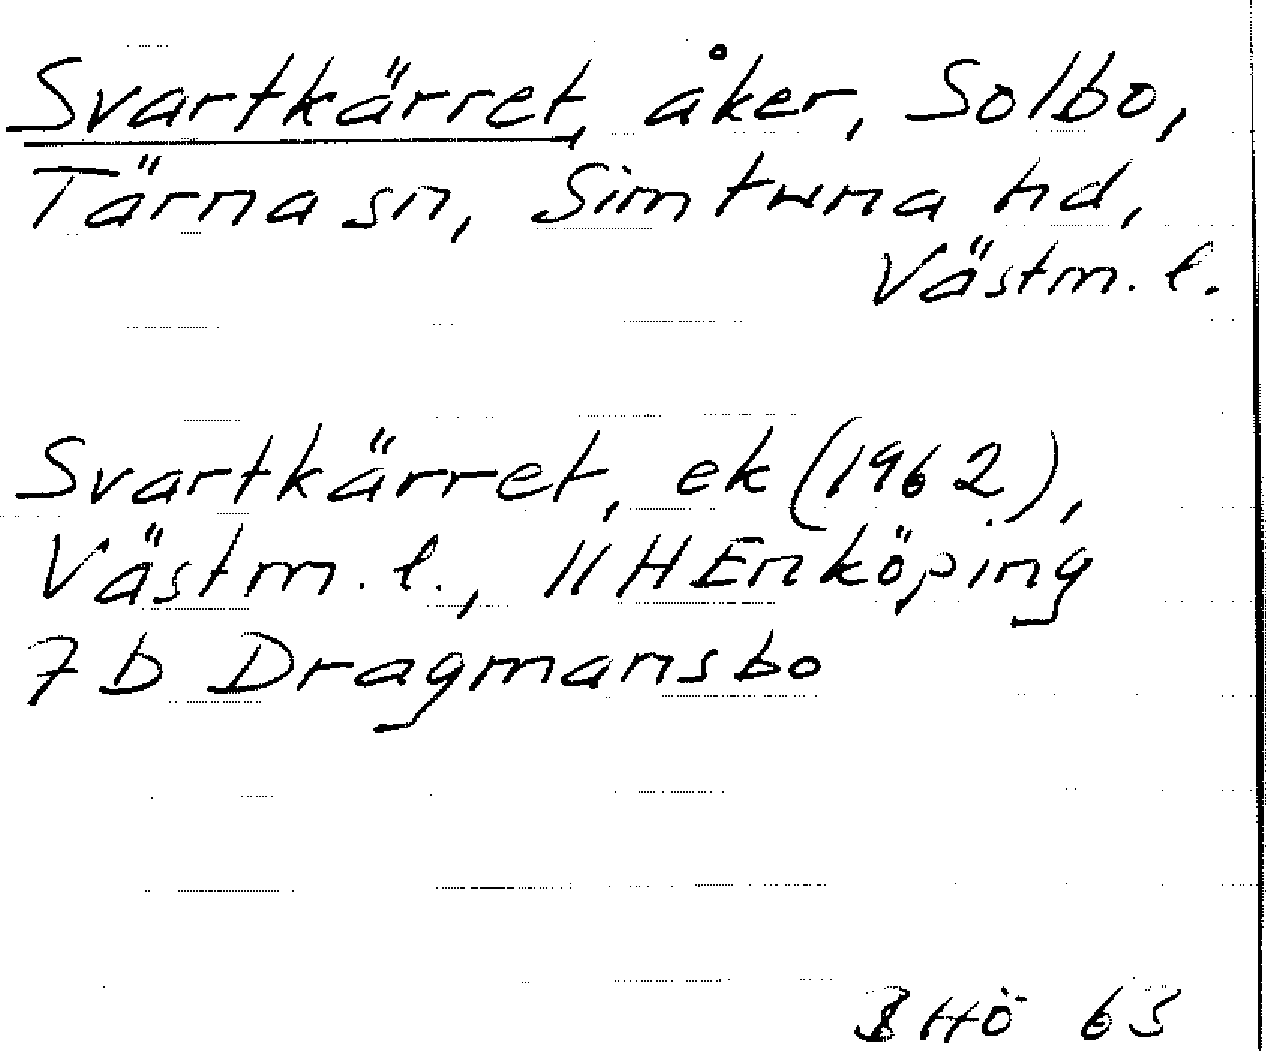 Svartkärret, åker, Solbo,
Tärna sn, Simtuna hd,
Västm. l.
Svartkärret, ek (1962),
Västm. l., 11 H Enköping
7 b Dragmansbo
BHÖ 63